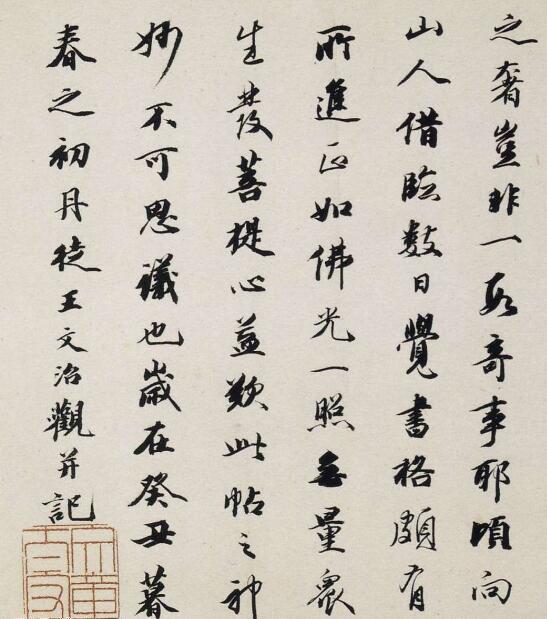 之奢豈非一段奇事耶頃向
山人借臨數日覺書格頗有
所進正如佛光一照無量眾
生發菩提心益歎此帖之神
妙不可思議也歲在癸丑暮
春之初丹徒王文治觀并記